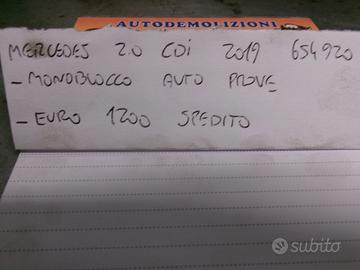 AUTODEMOLIZIONI
MERCEDES 2.0 CDI 2019 654920
- MONOBLOCCO AUTO PROVE
- EURO 1200 SPEDITO
subito